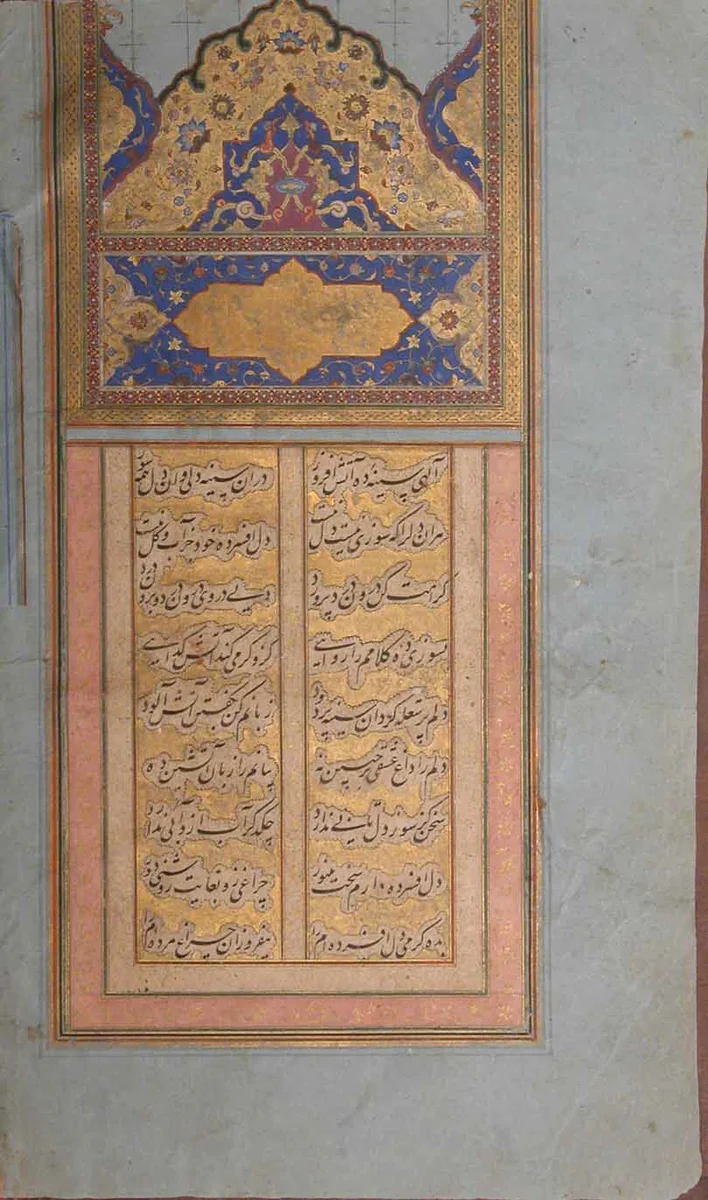 آلهی سینهٔ ده آتش افروز دران سینه دلی وان دل همه سوز
هران دل را که سوزی نیست دل نیست دل افسرده خود جز آب و گل نیست
کرامت کن درونی درد پرورد دلی در وی درون درد و برون درد
بسوزی ده کلامم را روایی کزو گرمی کند آتش کدایی
دلم پر شعله کردان سینه پر دود زبانم کن بکفتن آتش آلود
دلم را داغ عشقی بر جبین نه بیانم را زبان آتشین ده
سخن کز سوز دل تابی ندارد چکد کر آب ازو آبی ندارد
دل افسرده دارم سخت بی نور چراغی زو بغایت روشنی دور
بده کرمی دل افسرده ام را بیفروزان چراغ مرده ام را